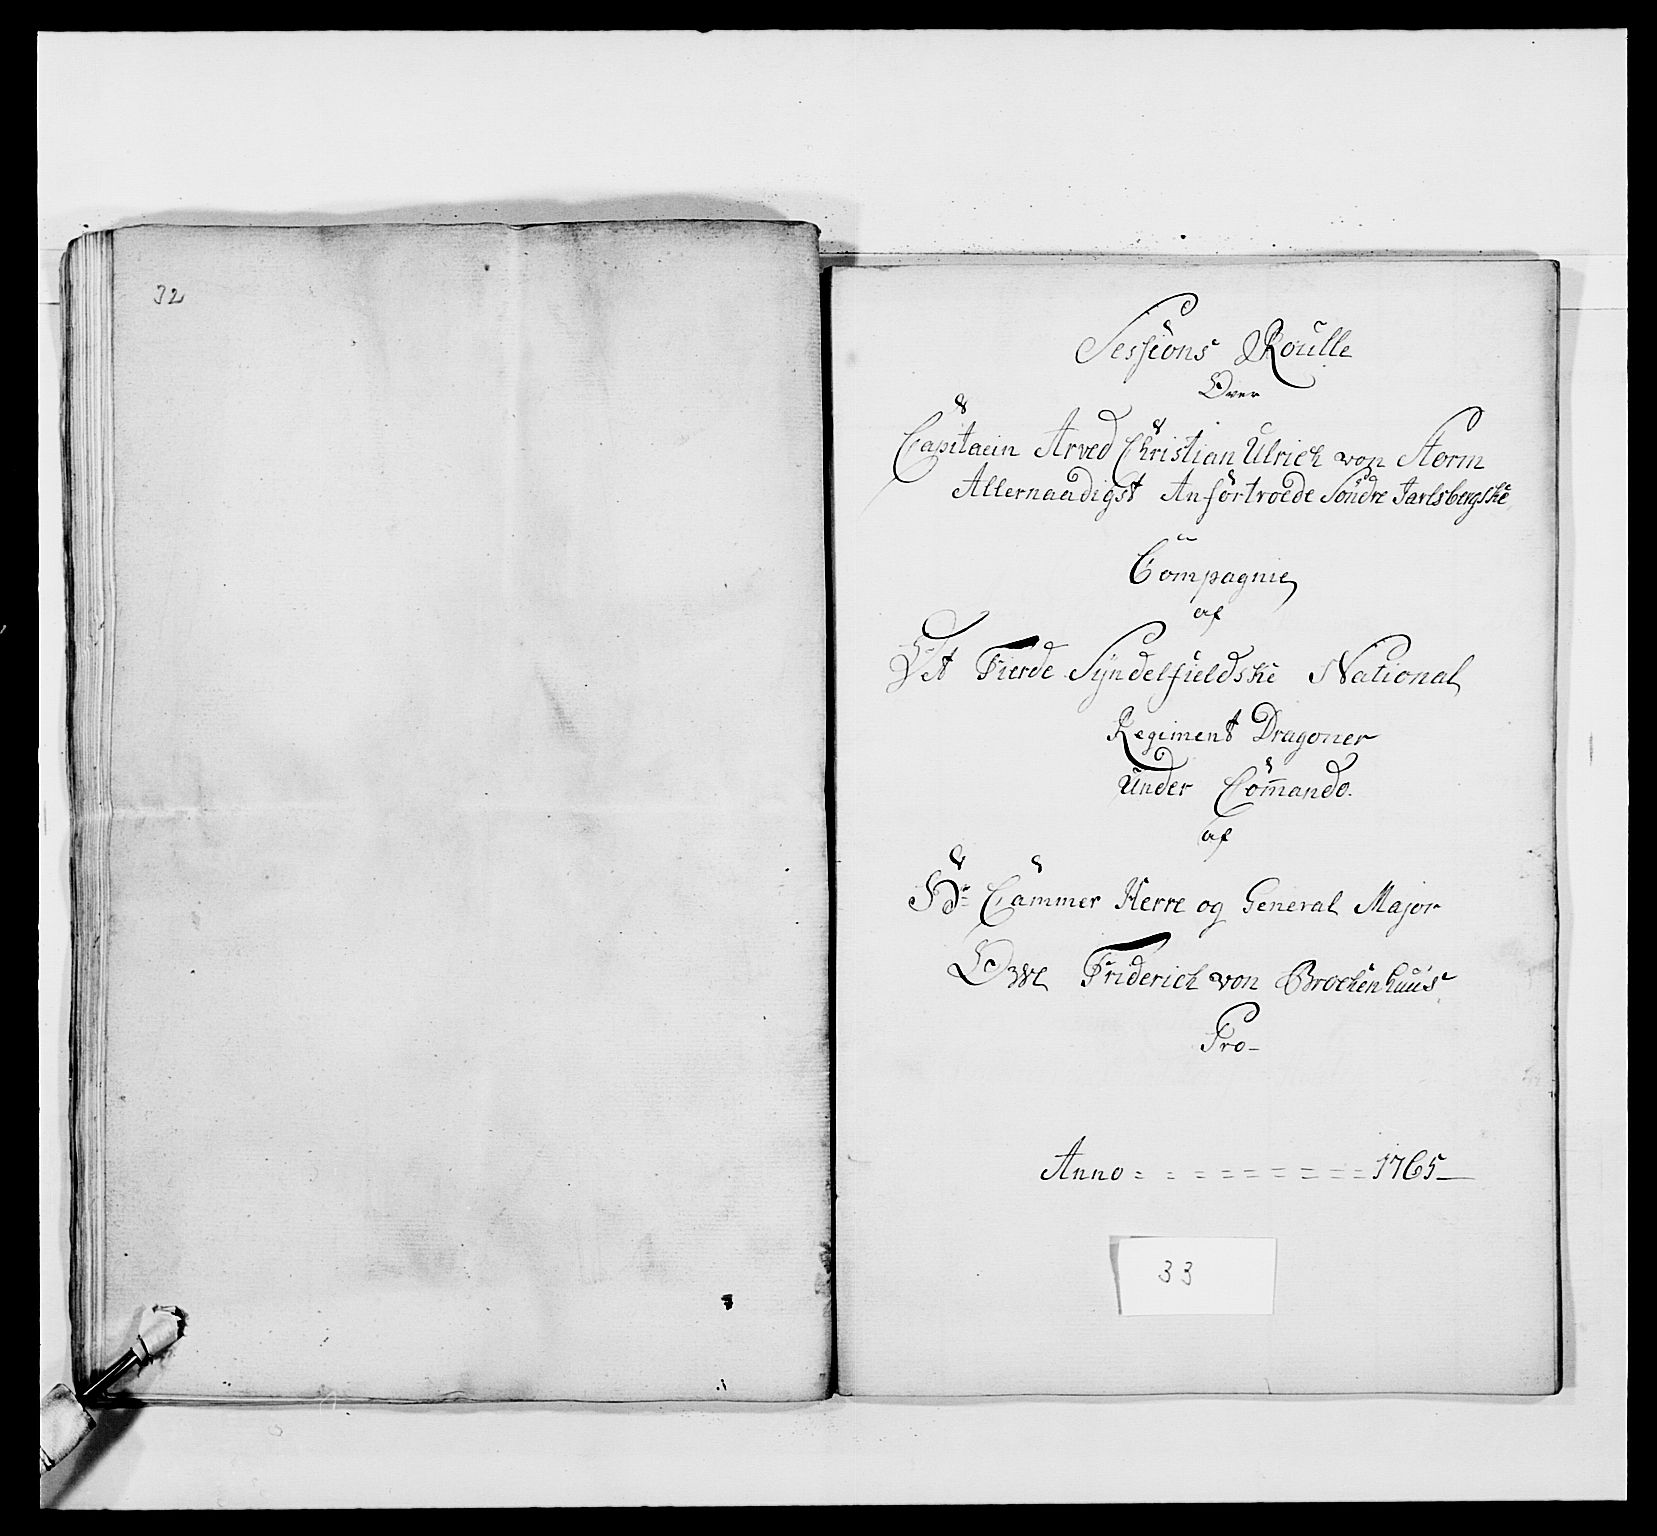 32
Sessions Roulle
Over
Capitaein Arved Christian Ulrich von Storm
Allernaadigst Anfortroede Söndre Jarlsbergske
Compagnie
af
Det Fierde Syndelfieldske National
Regiment Dragoner
Under Com̄ando.
af
Hr Cammer Herre og General Major
Owe Friderich von Brockenhuus
Pro-
Anno = = = = = = = = = 1765
33